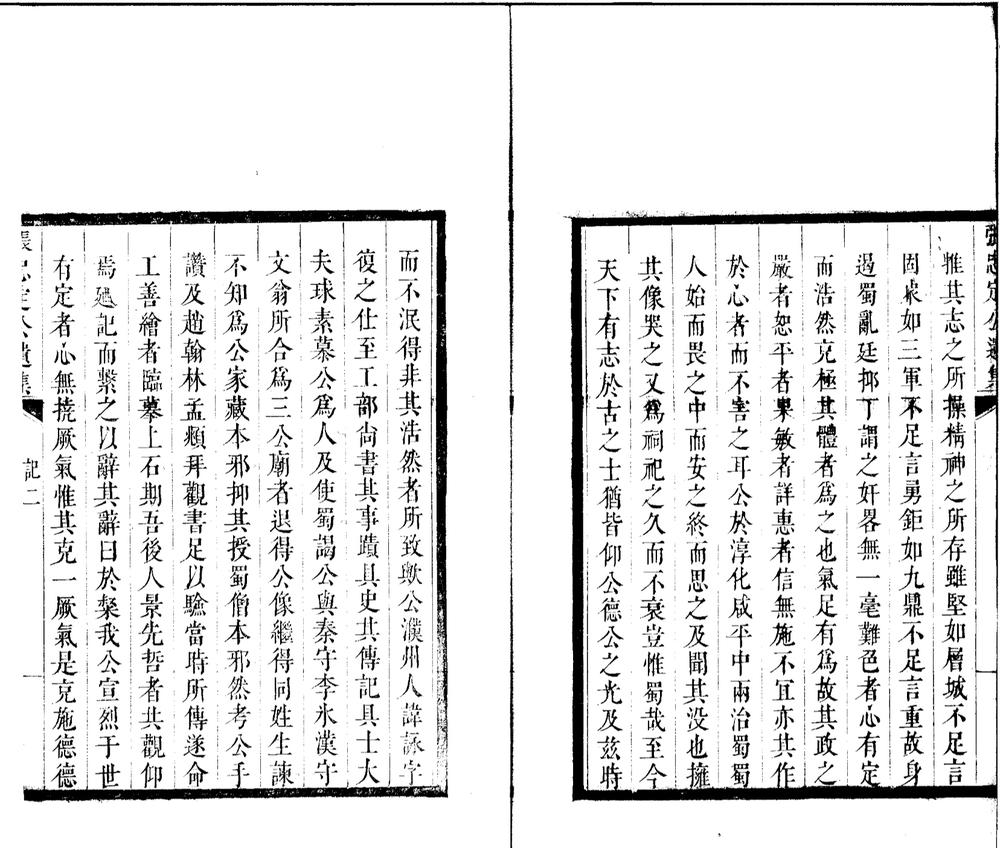 張忠定公遺集
惟其志之所操精神之所存雖堅如層城不足言
固衆如三軍不足言勇鉅如九鼎不足言重故身
過蜀亂廷抑丁謂之奸畧無一毫難色者心有定
而浩然克極其體者爲之也氣足有爲故其政之
嚴者恕平者果敏者詳惠者信無施不宜亦其作
於心者而不害之耳公於淳化咸平中兩治蜀蜀
人始而畏之中而安之終而思之及聞其没也擁
其像哭之又爲祠祀之久而不衰豈惟蜀哉至今
天下有志於古之士猶皆仰公德公之光及兹時
而不泯得非其浩然者所致歟公濮州人諱詠字
復之仕至工部尙書其事蹟具史其傳記具士大
夫球素慕公爲人及使蜀謁公與秦守李氷漢守
文翁所合爲三公廟者退得公像繼得同姓生諫
不知爲公家藏本邪抑其授蜀僧本邪然考公手
讚及趙翰林孟頫拜觀書足以驗當時所傳遂命
工善繪者臨摹上石期吾後人景先哲者共觀仰
焉廼記而繫之以辭其辭曰於粲我公宣烈于世
有定者心無撓厥氣惟其克一厥氣是克施德德
張忠定公遺集
記二
一